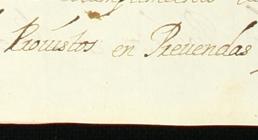 Provistos en Prevendas